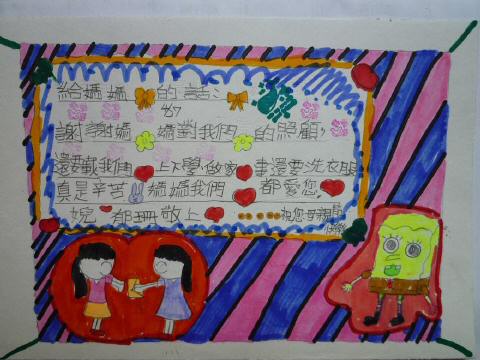 給媽媽的話:
謝謝媽媽對我們的照顧,
還要載我們上下學做家事還要洗衣服
真是辛苦媽媽我們都愛您,
婉郁珊敬上祝您母親節快樂